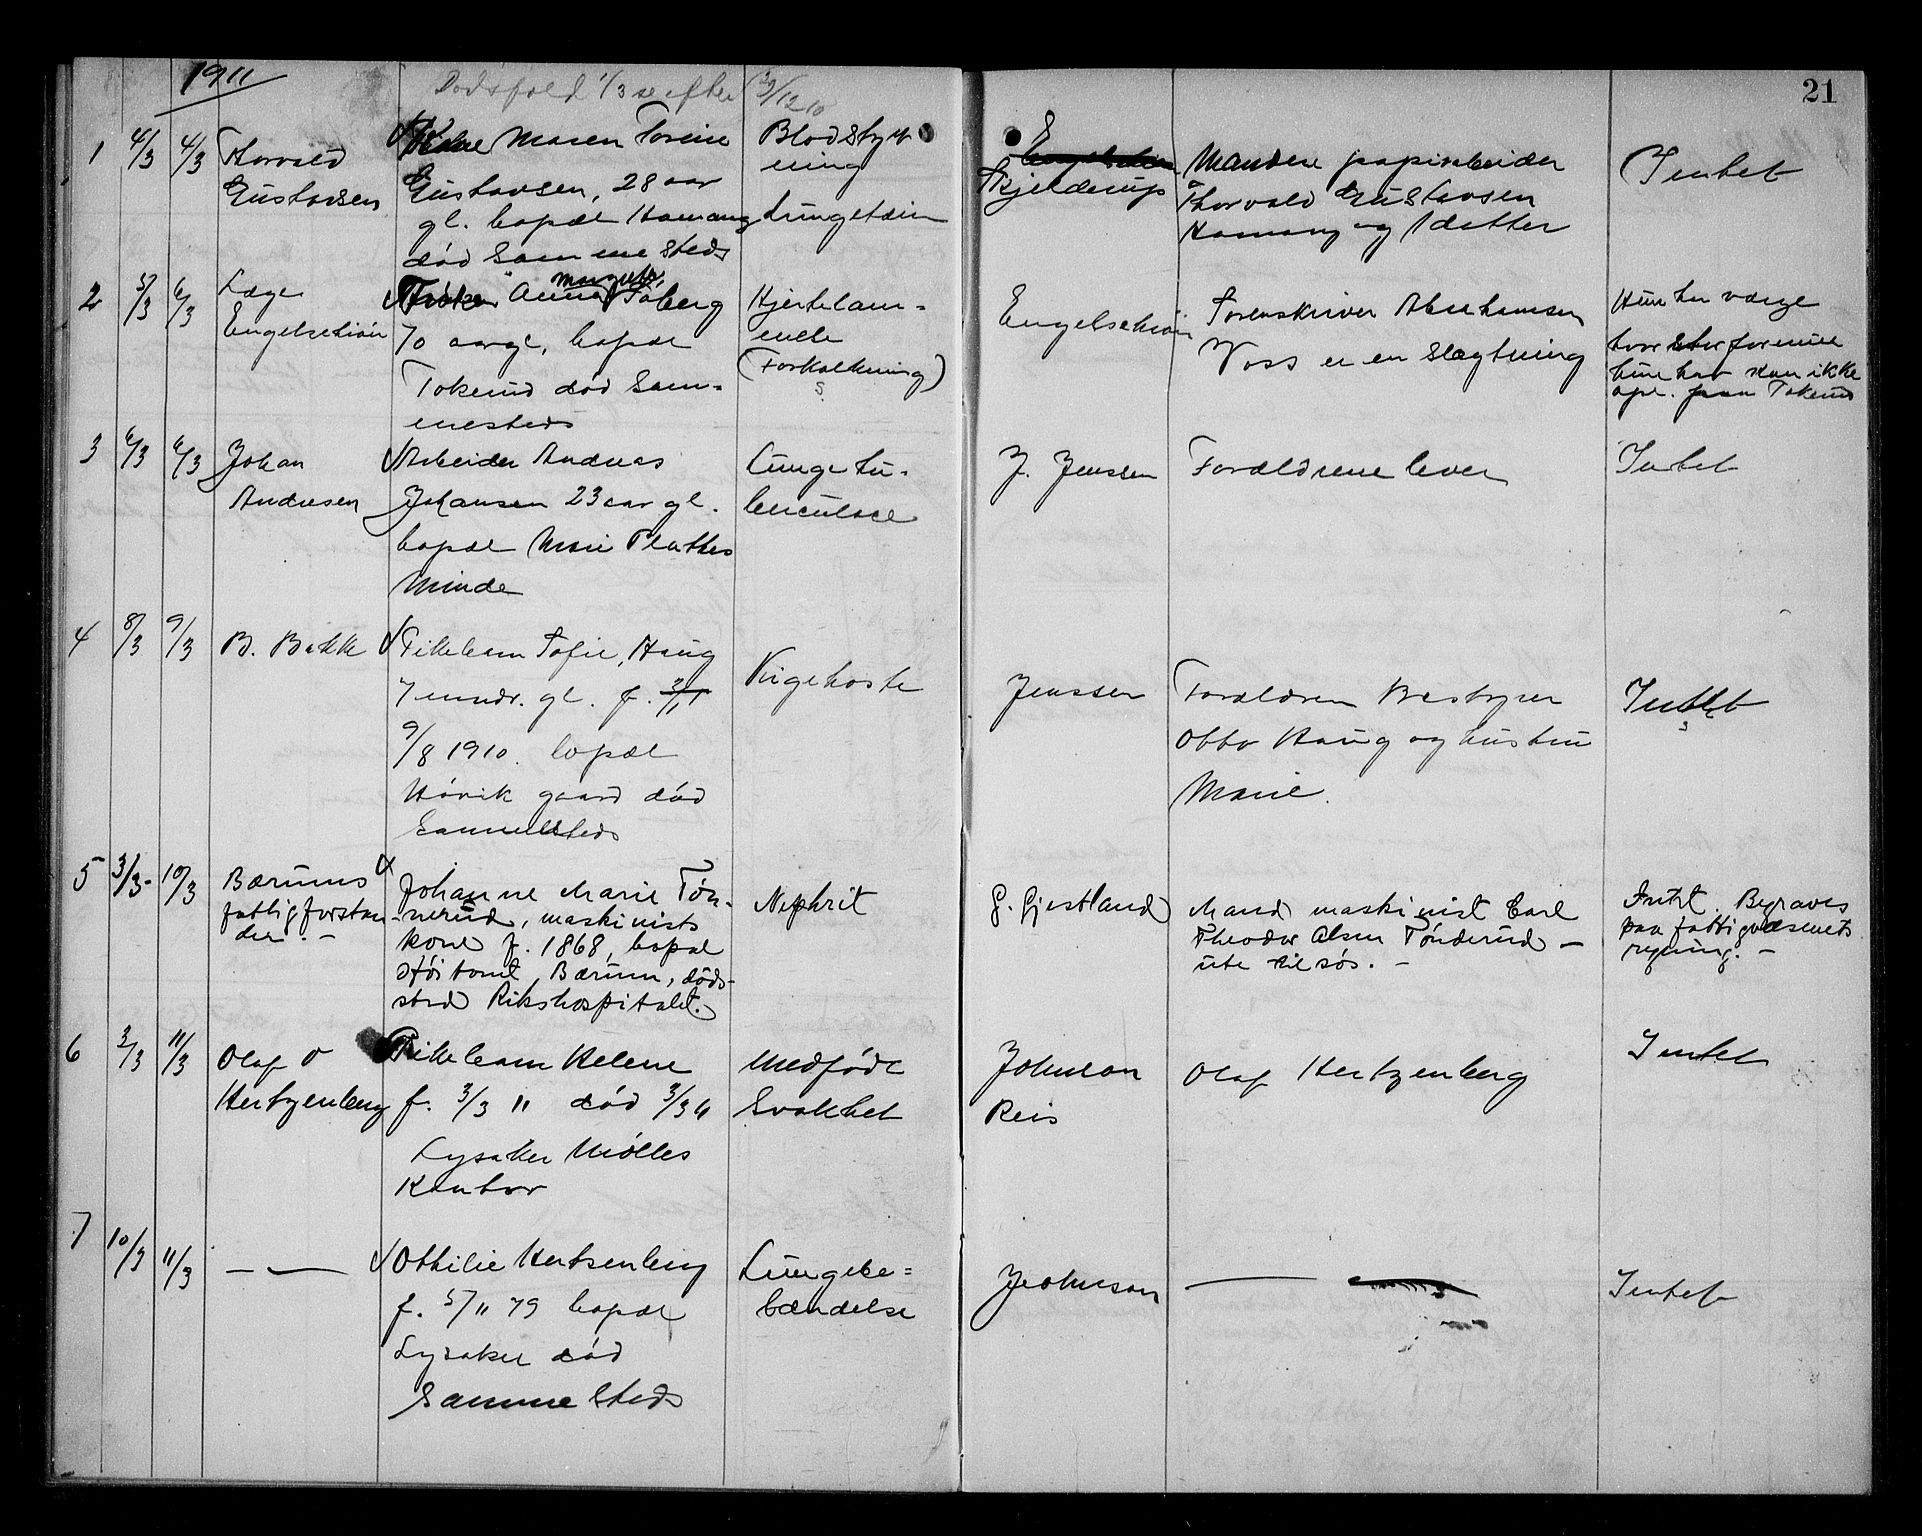 1911
Dødsfald 1/3 se efter 29/12 10
21
1 4/3 4/3 Thorvald
Gustavsen
Maren Torine
Gustavsen, 28 aar
gl. bopæl Hamang
død sammesteds
Blodstyrt
ning
Lungetæring
E
Engelschiøn
Kjelderup
Manden papirarbeider
Thorvald Gustavsen
Hamang og 1 datter
Intet
2 5/3 6/3 Læge
Engelschiøn
Frøken Anna Margrete Foberg
70 aar gl. bopæl
Tokerud død sam-
mesteds
Hjertelam-
melse
(Forkalkning)
Engelschiøn
Sorenskriver Abrahamsen
Voss er en slægtning
Hun har værge
hvor stor formue
hun har kan ikke
opl. paa Tokerud
3 6/3 6/3 Johan
Andresen
Arbeider Andreas
Johansen 23 aar gl.
bopæl Marie Plathes
Minde
Lungetu-
berculose
J. Jenssen
Forældrene lever
Intet
4 8/3 9/3 B. Bakke
Pikebarn Sofie, Haug
7 mndr. gl. f.
9/8 1910. bopæl
Høvik gaard død
sammesteds
Kigehoste
Jenssen
Forældren Bestyrer
Otto Haug og hustru
Marie.
Intet
5 3/3- 10/3 Bærums
fattigforstan-
der. -
Johanne Marie Tøn-
nerud, maskinists
kone f. 1868, bopæl
Høitomt, Bærum, døds-
sted Rikshospitalet.
Nephrit
G. Gjestland
Mand maskinist Carl
Theodor Olsen Tønderud -
ute til søs. -
Intet. Begraves
paa fattigvæsenets
regning. -
6 3/3 11/3 Olaf O
Hertzenberg
Pikebarn Helene
f. 3/3 11 død 3/3 11
Lysaker Mølles
Kontor
Medfødt
Svakhet
Johnson
Reis
Olaf Hertzenberg
Intet
7 10/3 11/3 — —
Othilie Hertsenberg
f. 5/11 79 bopæl
Lysaker død
Sammesteds
Lungebe-
tændelse
Johnson
— —
Intet